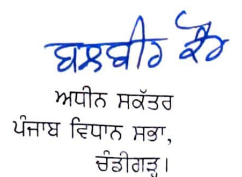 ਬਲਬੀਰ ਕੌਰ
ਅਧੀਨ ਸਕੱਤਰ
ਪੰਜਾਬ ਵਿਧਾਨ ਸਭਾ,
ਚੰਡੀਗੜ੍ਹ।